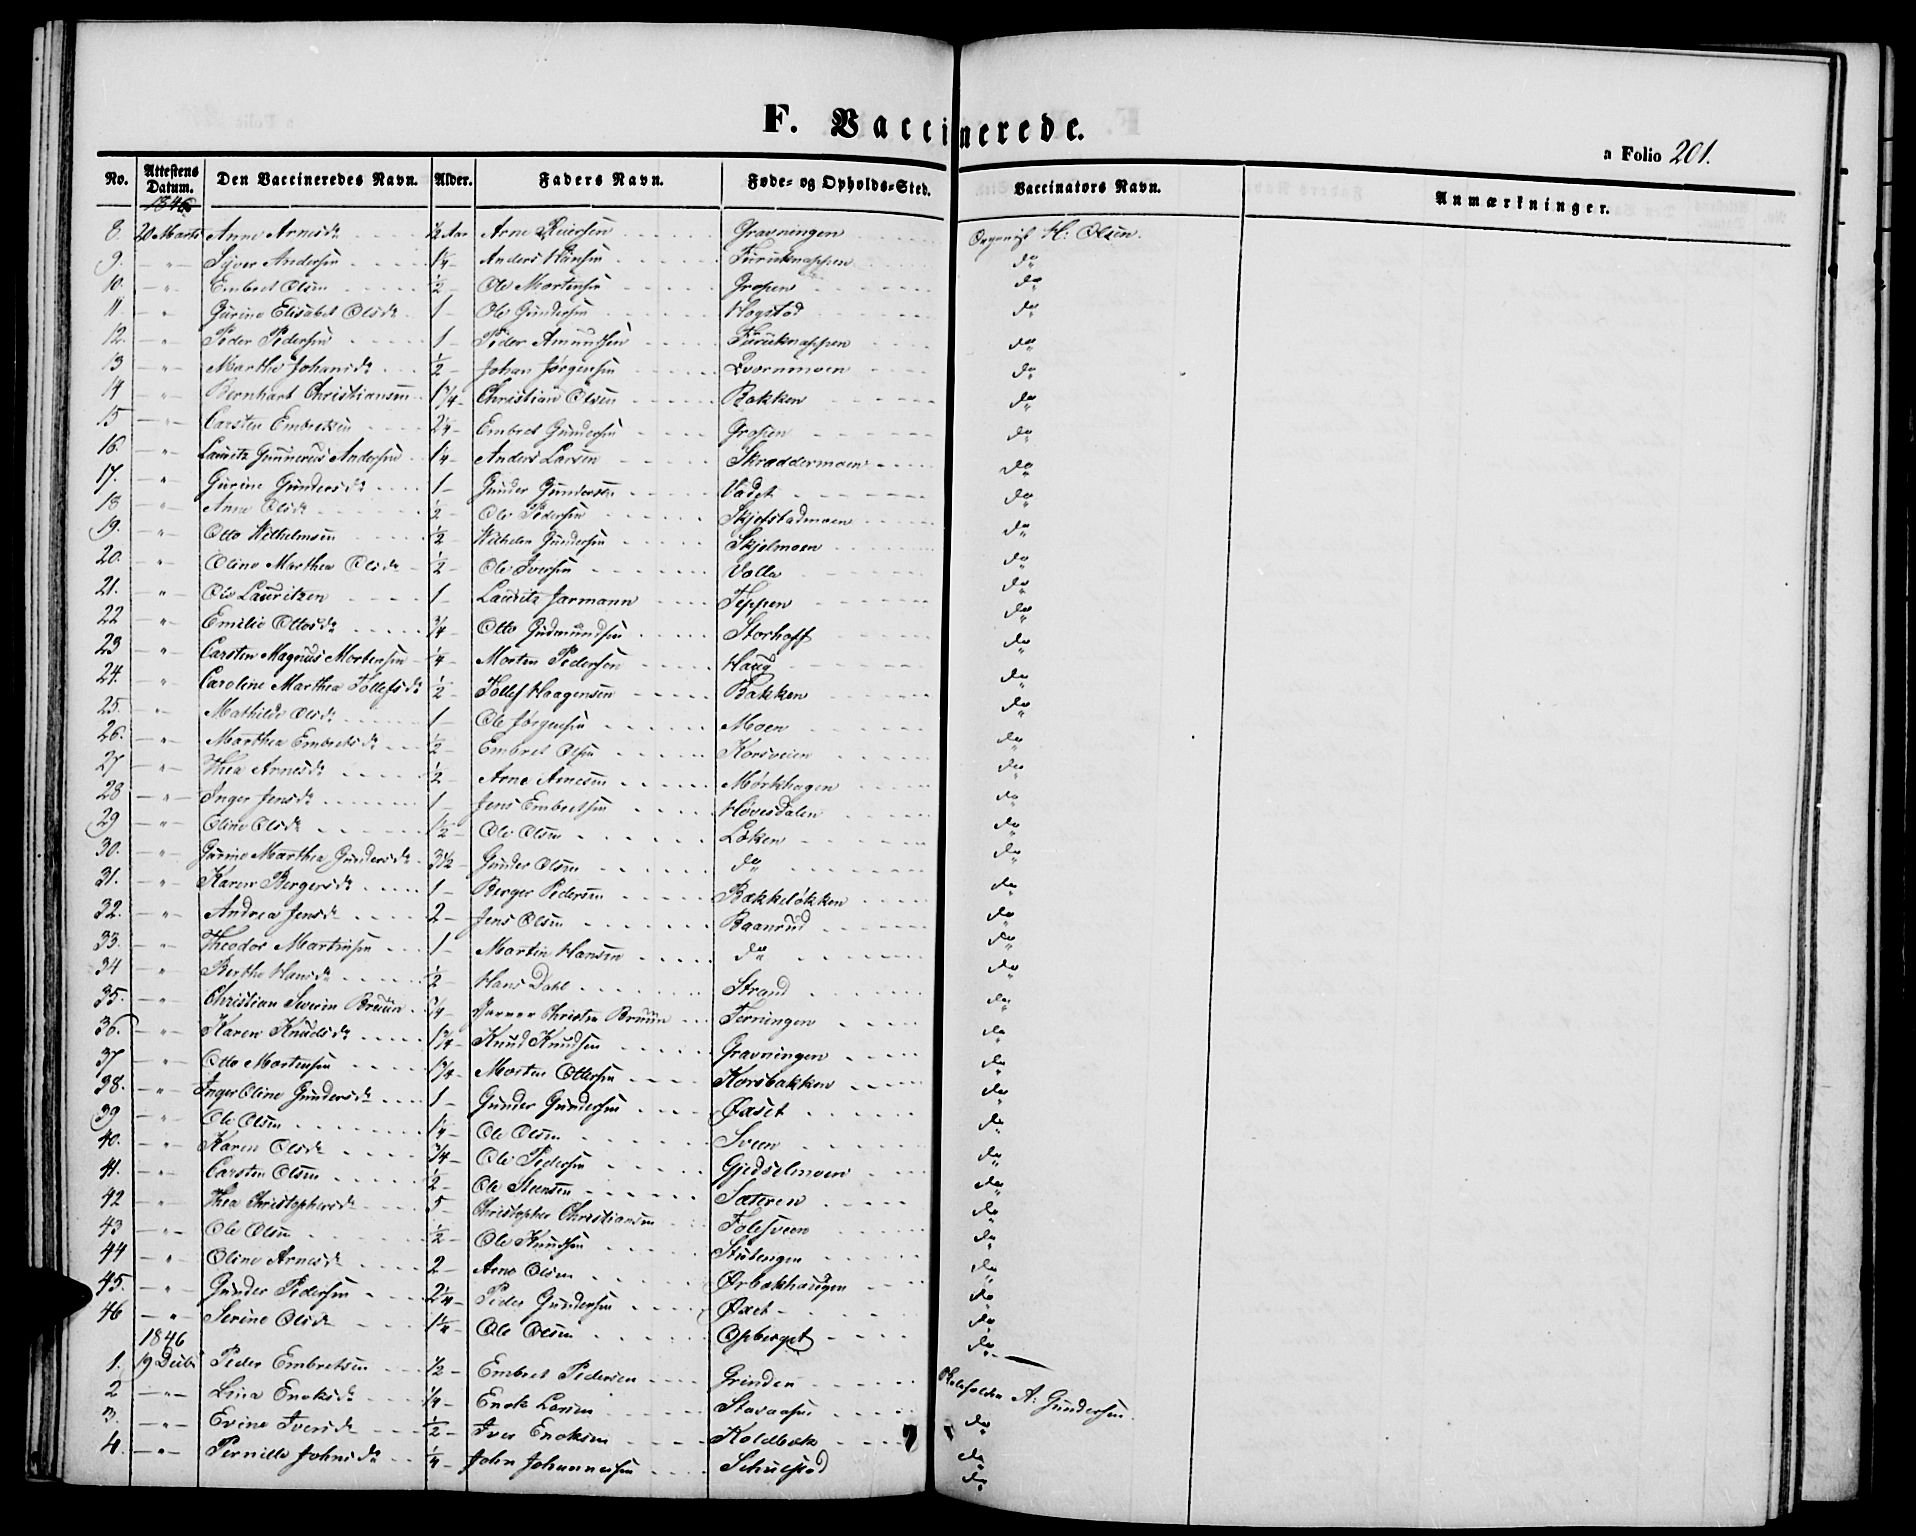 F. Vaccinerede.
a Folio 201.
No. Attestens Datum. Den Vaccineredes Navn. Alder. Faders Navn. Føde- og Opholds-Sted. Vaccinators Navn. Anmærkninger.
1846
8. 20 Marts Anne Arnesdr ½ Aar Arne Reiersen Gravningen Organist H: Olsen.
9. - " - Syver Andersen 1¼ - Anders Hansen Furuknappen do
10. - " - Embret Olsen ½ - Ole Mortensen Gropen do
11. - " - Gurine Elisabet Olsdr 1 - Ole Gundersen Hogstad do
12. - " - Peder Pedersen 1 - Peder Amundsen Furuknappen do
13 - " - Marthe Johansdr ½ - Johan Jørgensen Qvernmoen do
14 - " - Bernhart Christiansen 1¾ - Christian Olsen Bakken do
15 - " - Carsten Embretsen 2¼ - Embret Gundersen Gropen do
16. - " - Lauritz Gunnerus Andersen 1¼ - Anders Larsen Skræddermoen do
17. - " - Gurine Gundersdr 1 - Gunder Gundersen Vadet do
18 - " - Anne Olsdr ½ - Ole Pedersen Skjefstadmoen do
19. - " - Otto Wilhelmsen ½ - Wilhelm Gundersen Skjelmoen do
20. - " - Oline Marthea Olsdr ½ - Ole Iversen Volla do
21. - " - Ole Lauritzen 1 - Lauritz Jarmann Teppen do
22 - " - Emilie Ottosdr ¾ - Otto Gudmundsen Storhoff do
23 - " - Carsten Magnus Mortensen ¼ - Morten Pedersen Haug do
24. - " - Caroline Marthea Tollefsdr ½ - Tollef Haagensen Bakken do
25. - " - Mathilde Olsdr 1 - Ole Jørgensen Moen do
26. - " - Marthea Embretsdr ½ - Embret Olsen Korsveien do
27 - " - Thea Arnesdr ½ - Arne Arnesen Mørkhagen do
28 - " - Inger Jensdr 1 - Jens Embretsen Hovesdalen do
29 - " - Oline Olsdr 1½ - Ole Olsen Løken do
30. - " - Gurine Marthea Gundersdr 3½ - Gunder Olsen do do
31. - " - Karen Bergersdr 1 - Berger Pedersen Bækkeløkken do
32. - " - Andrea Jensdr 2 - Jens Olsen Baanrud do
33. - " - Theodor Martinsen 1 - Martin Hansen do do
34 - " - Berthe Hansdr ½ - Hans Dahl Strand do
35. - " - Christian Severin Bruun ¾ - Christen Bruun Terningen do
36. - " - Karen Knudsdr 1¾ - Knud Knudsen Gravningen do
37 - " - Otto Mortensen 1¾ - Morten Ottersen Korsbakken do
38. - " - Inger Oline Gundersdr 1 - Gunder Gundersen Øxset do
39 - " - Ole Olsen 1¼ - Ole Olsen Sveen do
40. - " - Karen Olsdr ¾ - Ole Pedersen Gjedselmoen do
41. - " - Carsten Olsen ½ - Ole Steensen Sæteren do
42 - " - Thea Christophersdr 5 - Christopher Christiansen Folesveen do
43 - " - Ole Olsen ½ - Ole Knudsen Stubengen do
44 - " - Oline Arnesdr 2 - Arne Olsen Ørbækhaugen do
45. - " - Gunder Pedersen 2¼ - Peder Gundersen Øxet do
46 - " - Serine Olsdr 1¼ - Ole Olsen Opberget do
1846
1. 19 Decbr Peder Embretsen ½ - Embret Pedersen Grinden A: Gundersen.
2 - " - Lina Enoksdr ¼ - Enok Larsen Stavaasen do
3. - " - Evine Iversdr ½ - Iver Enoksen Koldbæk do
4. - " - Pernille Johnsdr ¼ - John Johannesen do